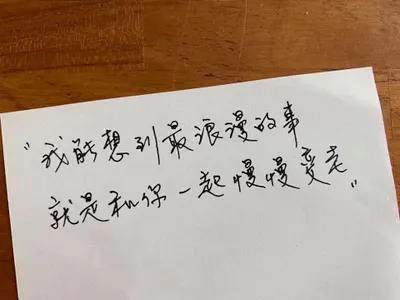 "我能想到最浪漫的事
就是和你一起慢慢变老"